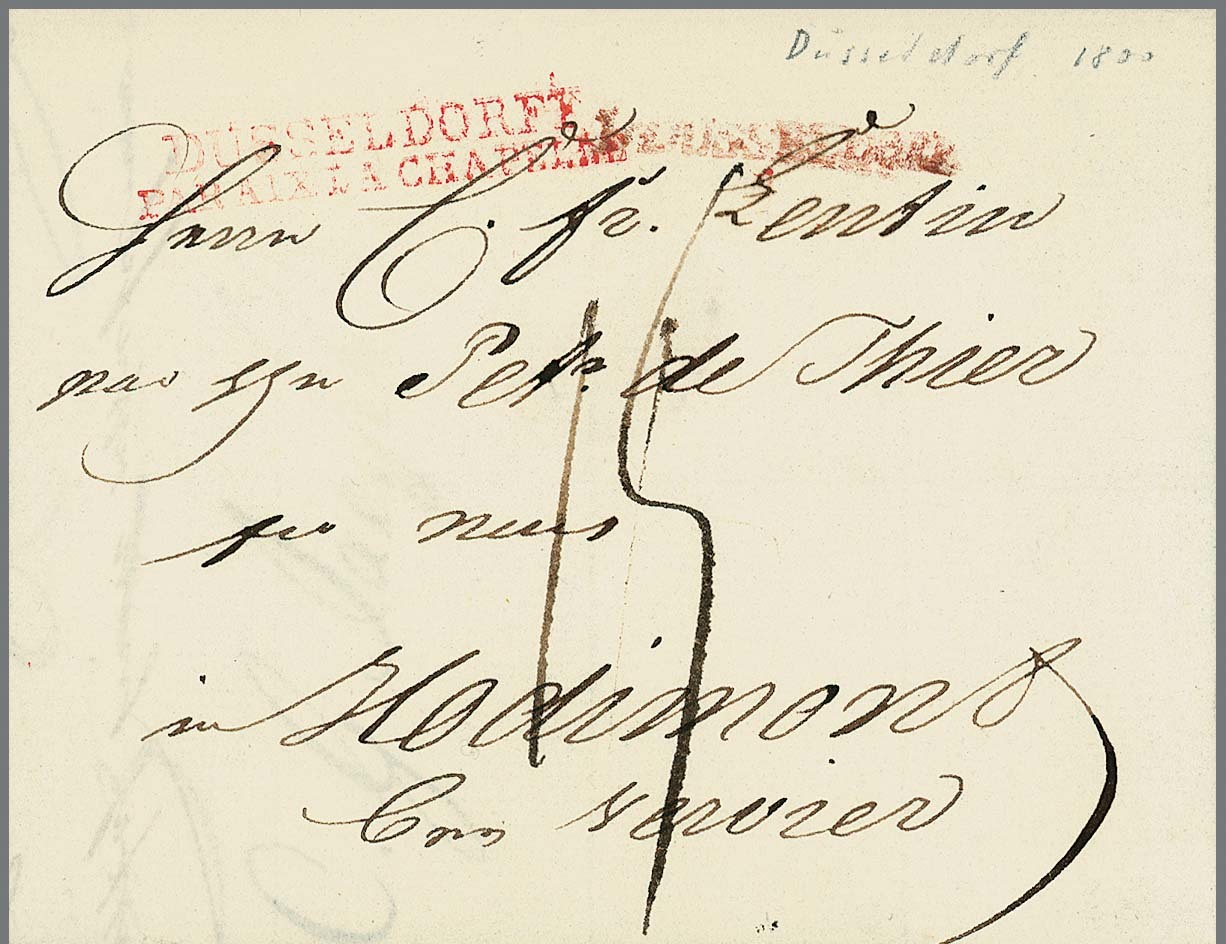 Düsseldorf 1800
DÜSSELDORFF
PAR AIX LA CHAPELLE
Herrn C. fr. Zentin
Pet. de Thier
neus
in Hodimont
bey vervier